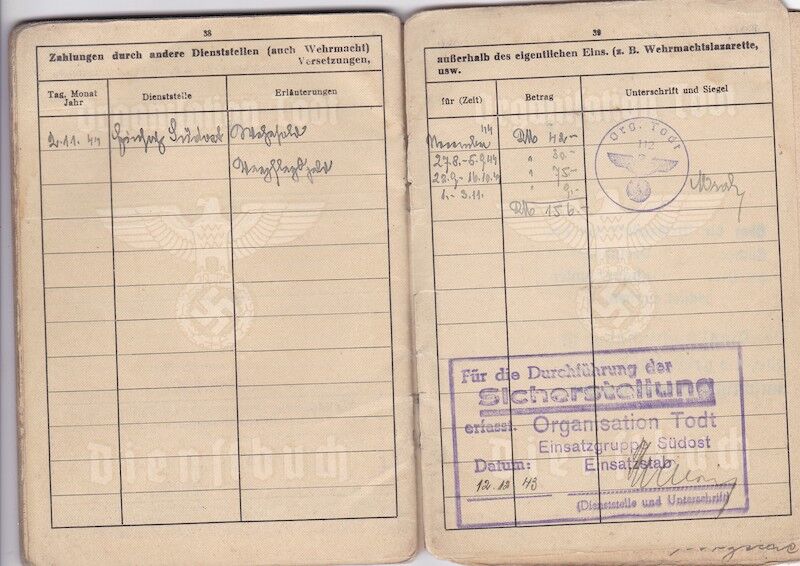 38
Zahlungen durch andere Dienststellen (auch Wehrmacht)
Versetzungen,
Tag, Monat
Jahr
Dienststelle
Erläuterungen
2.11.44 Südost Wehrsold
Verpflegsgeld
Organisation Todt
Dienstbuch
39
außerhalb des eigentlichen Eins. (z. B. Wehrmachtslazarette,
usw.
für (Zeit)
Betrag
Unterschrift und Siegel
44
November RM 42.-
27.8.-5.9.44 " 30.-
22.9.-16.10.4 " 75.-
1.-3.11. " 9.-
RM 156.-
Org. Todt
112
Organisation Todt
Dienstbuch
Für die Durchführung der
Sicherstellung
erfasst. Organisation Todt
Einsatzgruppe Südost
Datum: Einsatzstab
12.12.43
(Dienststelle und Unterschrift)